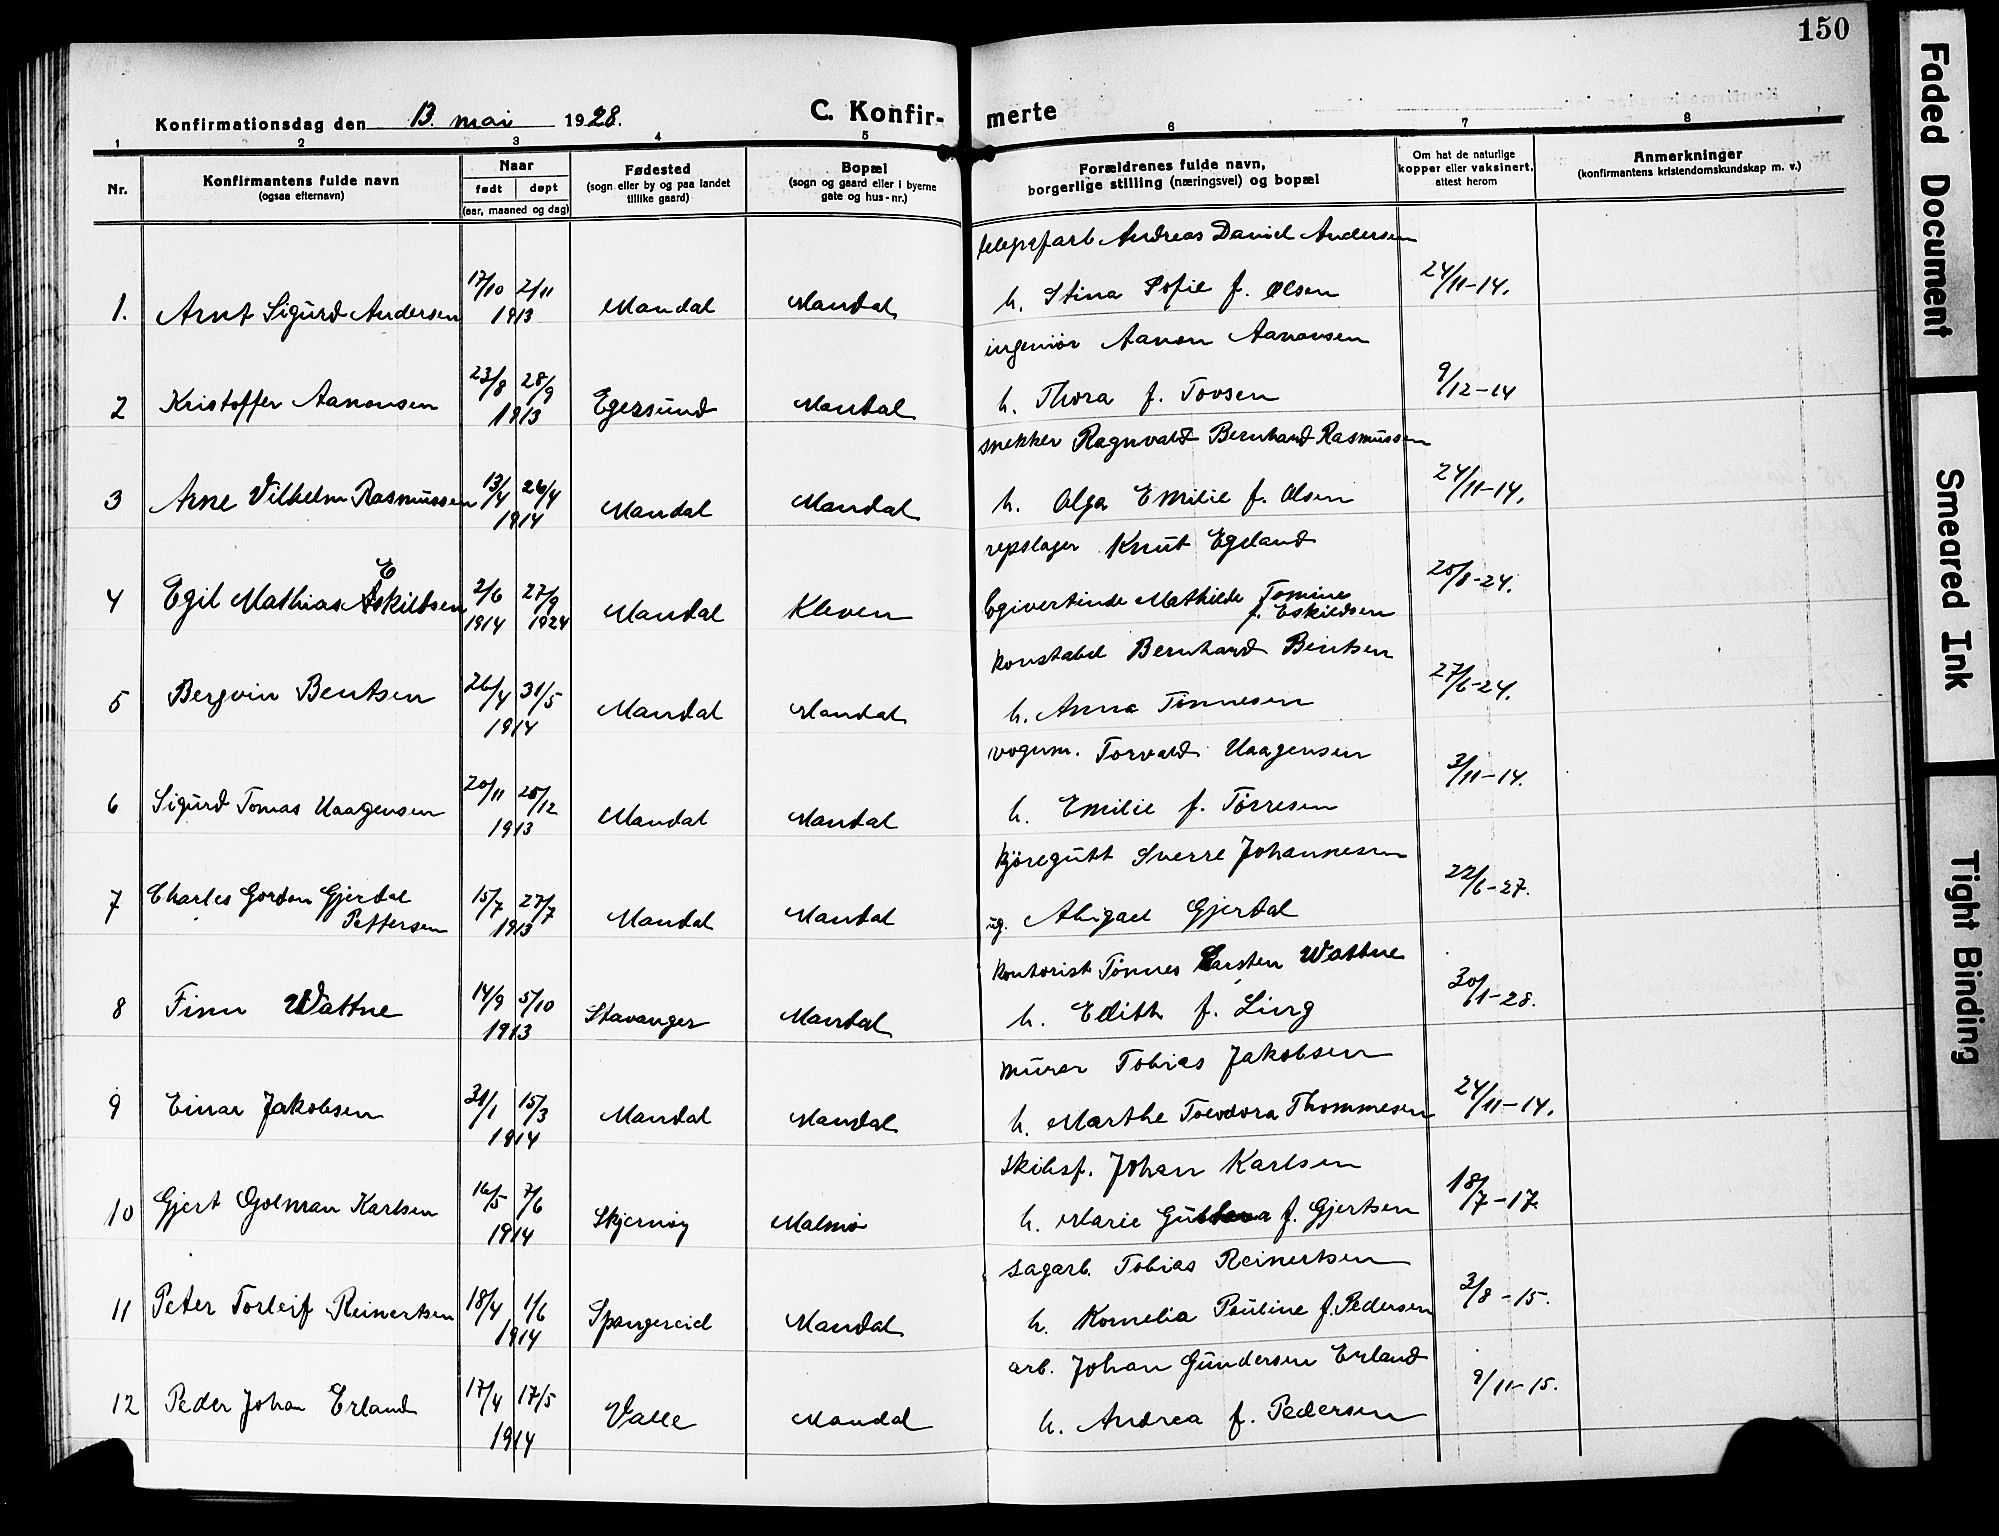 150
Konfirmationsdag den 13. mai 1928.
C. Konfir-merte
1 2 3 4 5 6 7 8
Nr.
Konfirmantens fulde navn
(ogsaa efternavn)
Naar
født døpt
(aar, maaned og dag)
Fødested
(sogn eller by og paa landet
tillike gaard)
Bopæl
(sogn og gaard eller i byerne
gate og hus-nr.)
Forældrenes fulde navn,
borgerlige stilling (næringsvei) og bopæl
Om hat de naturlige
kopper eller vaksinert,
attest herom
Anmerkninger
(konfirmantens kristendomskundskap m. v.)
telegrafarb Andreas Daniel Andersen
1. Arnt Sigurd Andersen 17/10 2/11 1913 Mandal Mandal h. Stina Sofie f. Olsen 24/11-14.
ingeniør Aanon Aanonsen
2 Kristoffer Aanonsen 23/8 28/9 1913 Egersund Mandal h. Thora f. Tovsen 9/12-14
snekker Ragnvald Bernhard Rasmussen
3 Arne Vilhelm Rasmussen 13/4 26/4 1914 Mandal Mandal h. Olga Emilie f. Olsen 24/11-14.
repslager Knut Egeland
4 Egil Mathias Eskildsen 2/6 1914 27/9 1924 Mandal Kleven Egivertinde Mathilde Tomine f. Eskildsen 25/8-24.
konstabel Bernhard Bentsen
5 Bergvin Bentsen 26/4 31/5 1914 Mandal Mandal h. Anna Tønnesen 27/6-24.
vognm. Torvald Uaagensen
6 Sigurd Tomas Uaagensen 20/11 25/12 1913 Mandal Mandal h. Emilie f. Tørresen 3/11-14.
kjøregutt Sverre Johannesen
7 Charles Gordon Gjerdal Pettersen 15/7 27/7 1913 Mandal Mandal ug. Abigael Gjertal 22/6-27.
kontorist Tønnes Karsten Wattne
8 Finn Wattne 14/9 5/10 1913 Stavanger Mandal h. Edith f. Ling 30/1-28.
murer Tobias Jakobsen
9 Einar Jakobsen 31/1 15/3 1914 Mandal Mandal h. Marthe Teodora Thommesen 24/11-14.
skibsf. Johan Karlsen
10 Gjert Golman Karlsen 16/5 7/6 1914 Skjernøy Malmø h. Marie Gustava f. Gjertsen 18/7-17.
sagarb. Tobias Reinertsen
11 Peter Torleif Reinertsen 18/4 1/6 1914 Spangereid Mandal h. Kornelia Pauline f. Pedersen 3/8-15.
arb. Johan Gundersen Erland
12 Peder Johan Erland 17/4 17/5 1914 Valle Mandal h. Andrea f. Pedersen 9/11-15.
Faded Document
Smeared Ink
Tight Binding